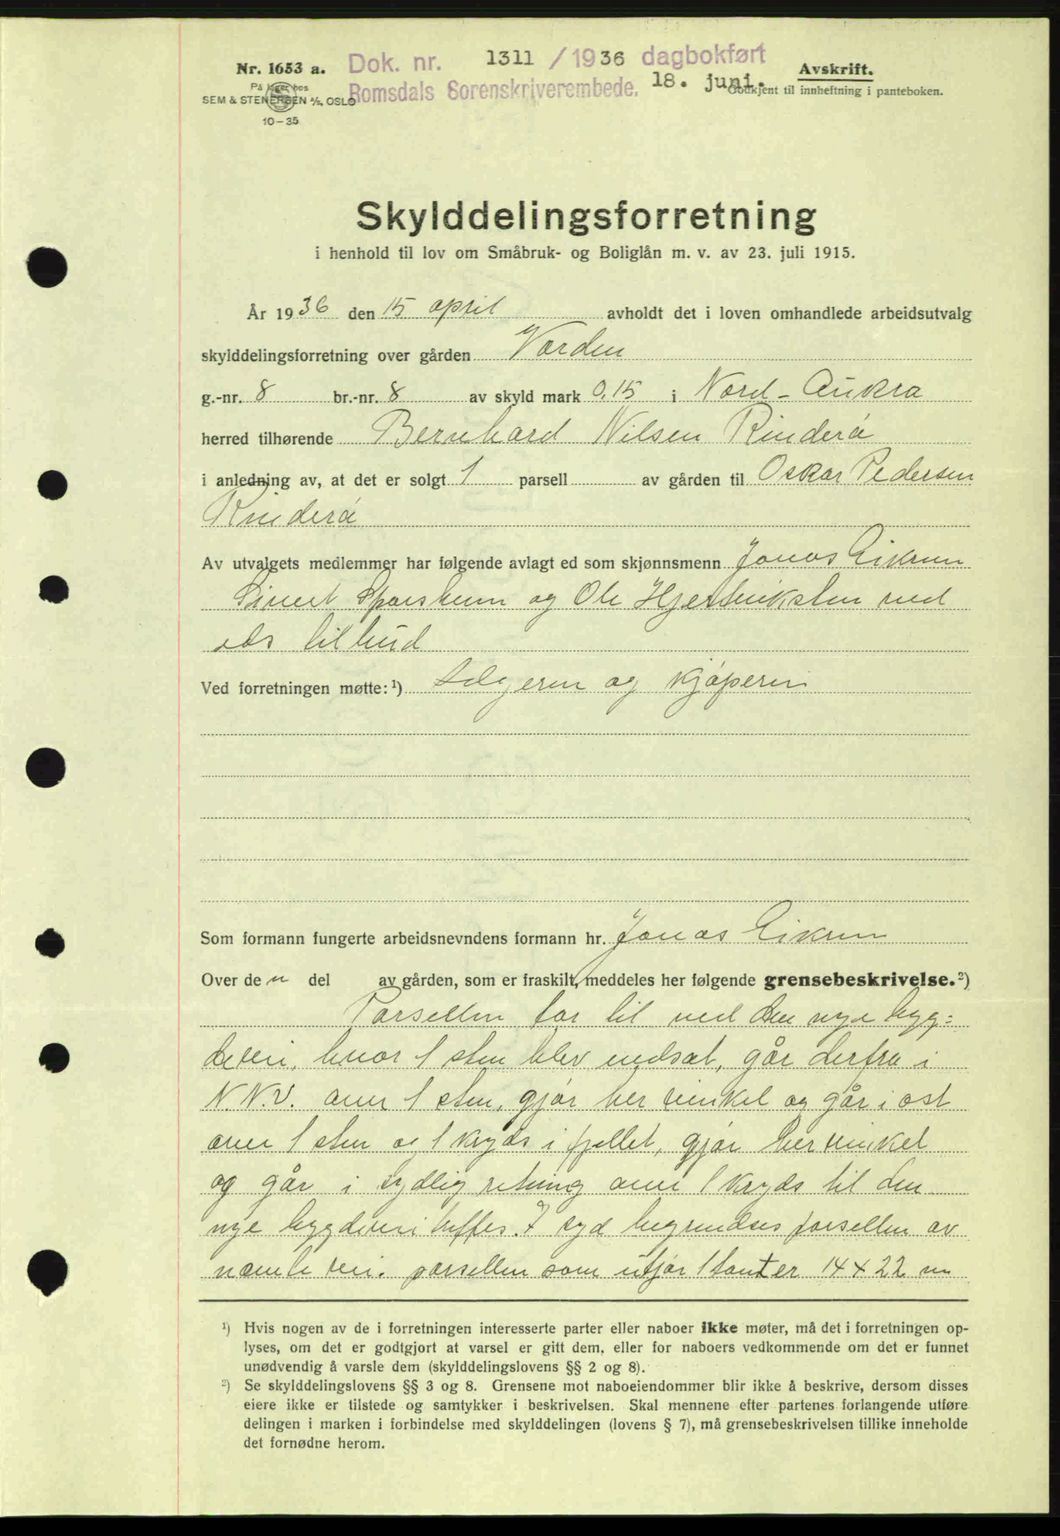 Nr. 1653 a.
På lager hos
SEM & STENERSEN A/S, OSLO
10-35
Dok. nr. 1311 / 1936 dagbokført
Romsdals Sorenskriverembede. 18. juni.
Avskrift.
Godkjent til innheftning i panteboken.
Skylddelingsforretning
i henhold til lov om Småbruk- og Boliglån m. v. av 23. juli 1915.
År 1936 den 15 april avholdt det i loven omhandlede arbeidsutvalg
skylddelingsforretning over gården Varden
g.-nr. 8 br.-nr. 8 av skyld mark 0,15 i Nord-Aukra
herred tilhørende Bernhard Nilsen Rinderø
i anledning av, at det er solgt 1 parsell av gården til Oskar Pedersen
Rinderø
Av utvalgets medlemmer har følgende avlagt ed som skjønnsmenn Jonas Eikrem
Sivert og Ole med
eds tilbud
Ved forretningen møtte:¹) Selgeren og kjøperen
Som formann fungerte arbeidsnevndens formann hr. Jonas Eikrem
Over den del av gården, som er fraskilt, meddeles her følgende grensebeskrivelse.²)
Parsellen tar til ved den nye byg=
devei, hvor 1 sten blev nedsat, går derfra i
N.N.V. over 1 sten, gjør her vinkel og går i øst
over 1 sten og 1 kryds i fjellet, gjør her vinkel
og går i sydlig retning over 1 kryds til den
nye bygdevei treffes. I syd begrendses parsellen av
nævnte vei. parsellen som utgjør 1 tomt er 14 x 22 m
¹) Hvis nogen av de i forretningen interesserte parter eller naboer ikke møter, må det i forretningen op-
lyses, om det er godtgjort at varsel er gitt dem, eller for naboers vedkommende om det er funnet
unødvendig å varsle dem (skylddelingslovens §§ 2 og 8).
²) Se skylddelingslovens §§ 3 og 8. Grensene mot naboeiendommer blir ikke å beskrive, dersom disses
eiere ikke er tilstede og samtykker i beskrivelsen. Skal mennene efter partenes forlangende utføre
delingen i marken i forbindelse med skylddelingen (lovens § 7), må grensebeskrivelsen tillike inneholde
det fornødne herom.